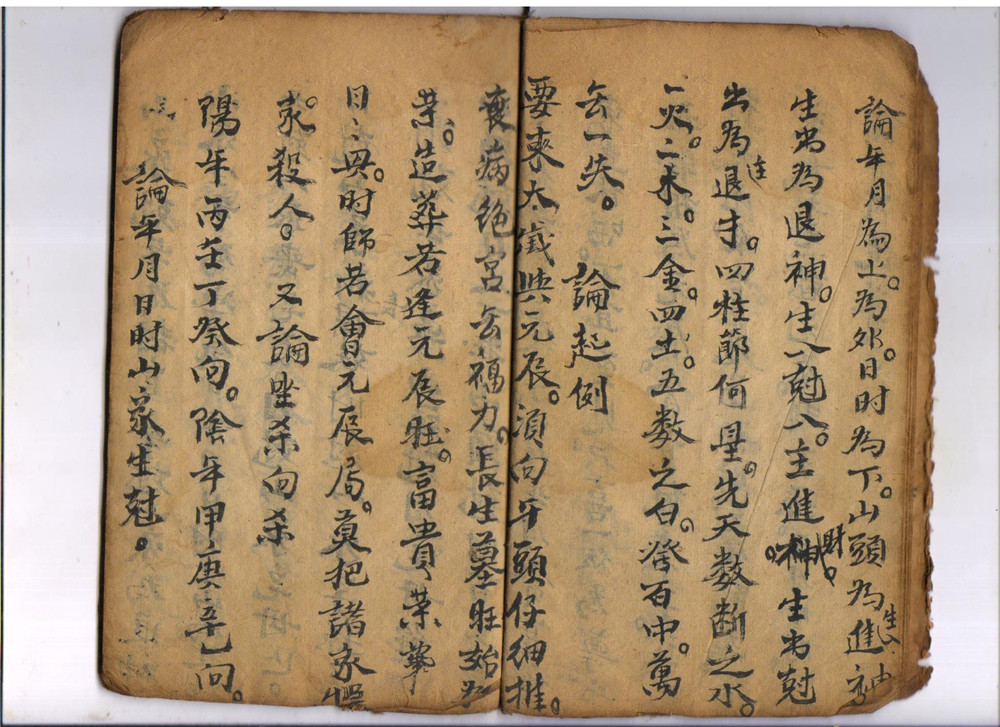 論年月為上。為外。日時為下。山頭為進神
生出為退神。生入尅入。主進財。生出尅
出為退才。四柱節何星。先天数断之水。
一火。二木。三金。四土。五数之白。發百中。萬
無一失。 論起例
要來太歲與元辰。須向牙頭仔細推。
衰病絶宮無福力。長生墓旺始
荣。造葬若逢元辰旺。富貴荣華
日〻興。时師若會元辰局。莫把諸家
家殺人。又論坐杀向杀
陽年丙壬丁癸向。陰年甲庚辛乙向。
論年月日时山家生尅。